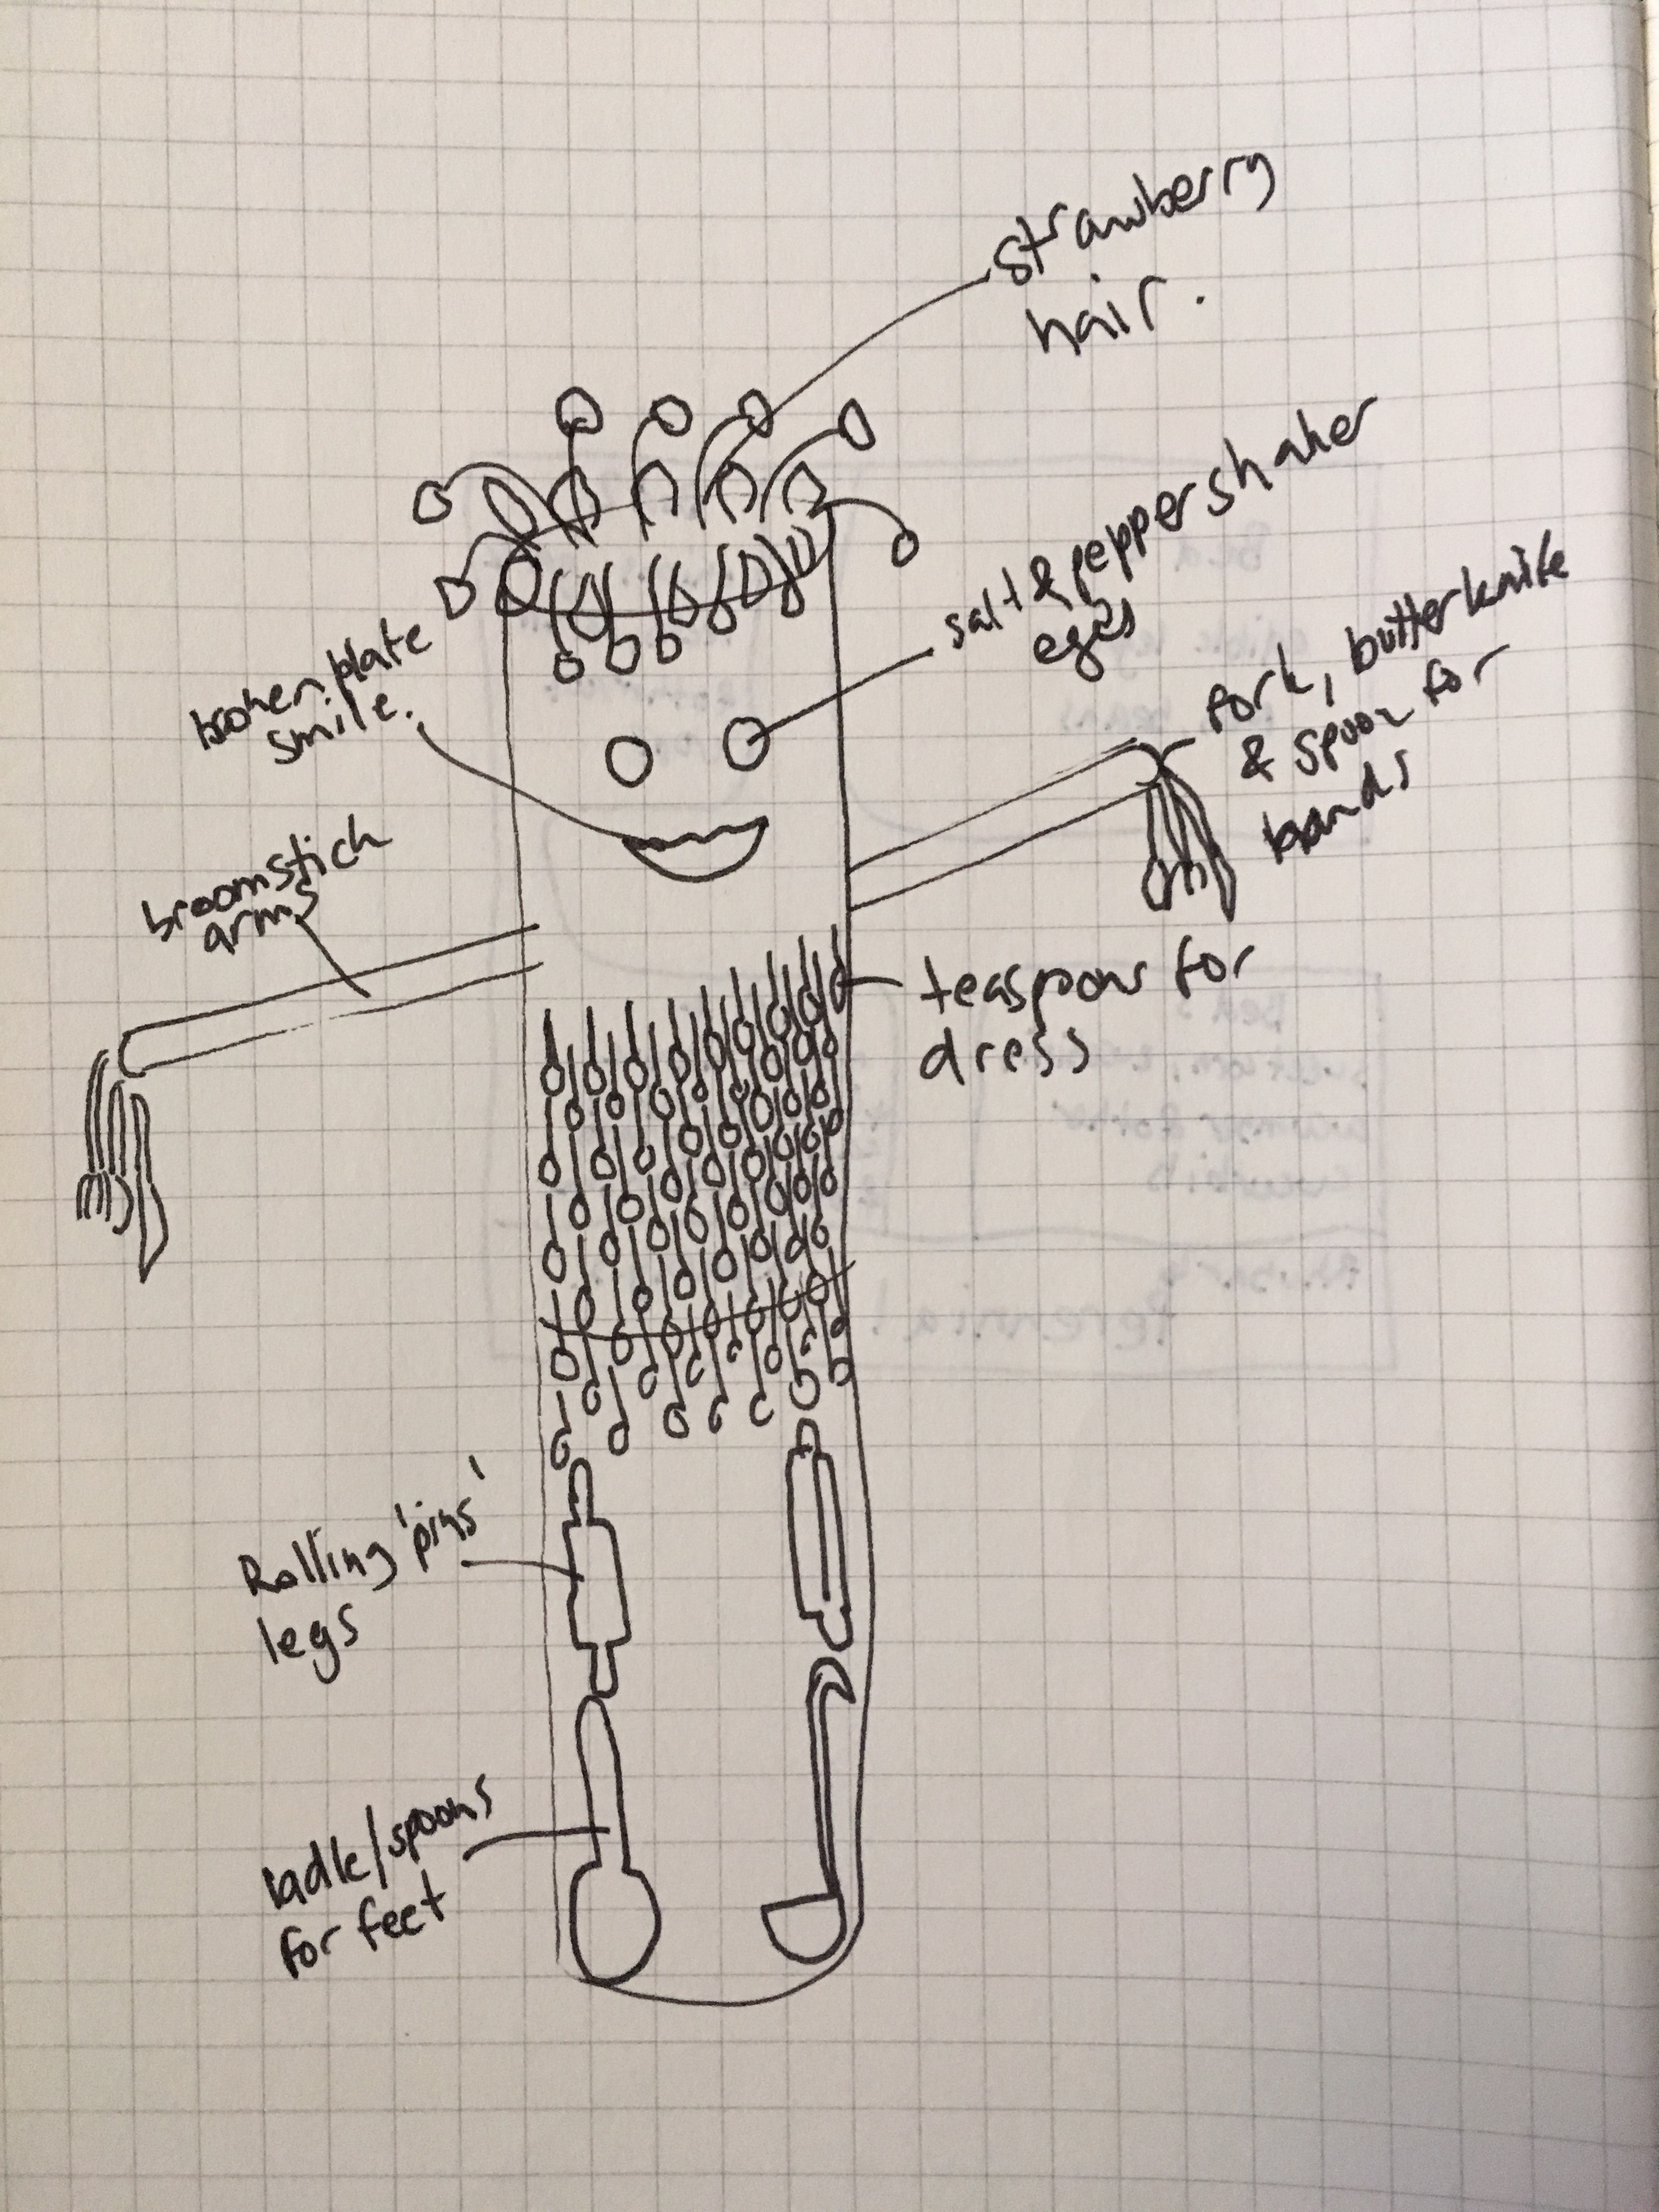 strawberry
hair.
salt & pepper shaker
eyes
broken plate
smile.
fork, butterknife
& spoon for
hands
broomstick
arms
teaspoons for
dress
Rolling 'pins'
legs
ladle/spoons
for feet
Perennial